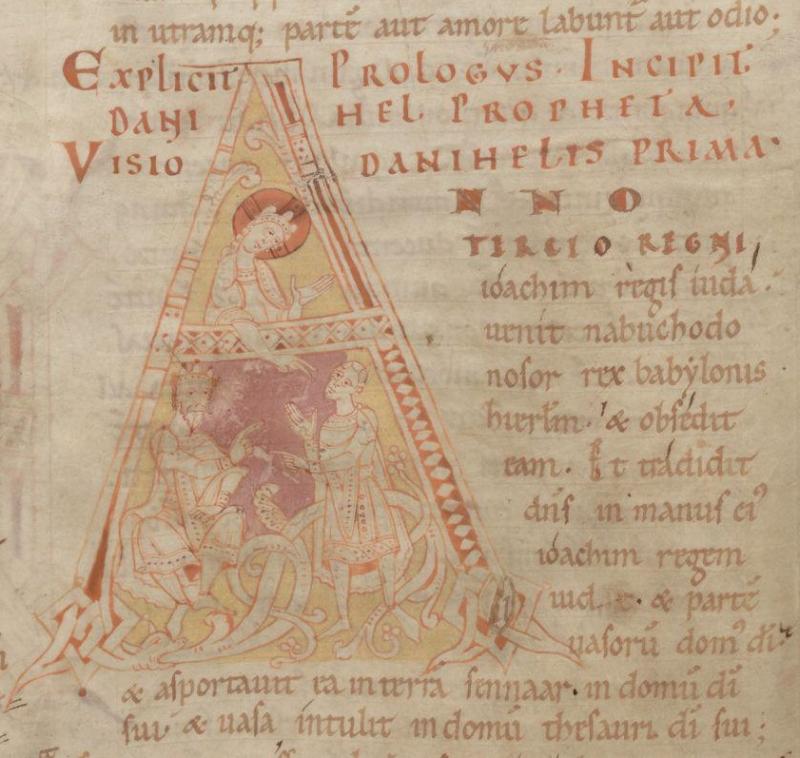 in utramq; partē aut amore labunt̄ aut odio;
EXPLICIT PROLOGVS· INCIPIT
DANIHEL PROPHETA·
VISIO DANIHELIS PRIMA·
ANNO
TERCIO REGNI
ioachim regis iuda·
uenit nabuchodo
nosor rex babylonis
hierl̄m· & obsedit
eam· Et tradidit
dn̄s in manus ei᾿
ioachim regem
iud & partē
uasorū dom᾿ dī·
& asportauit ea in terrā sennaar· in domū dī
sui· & uasa intulit in domū thesauri dī sui;